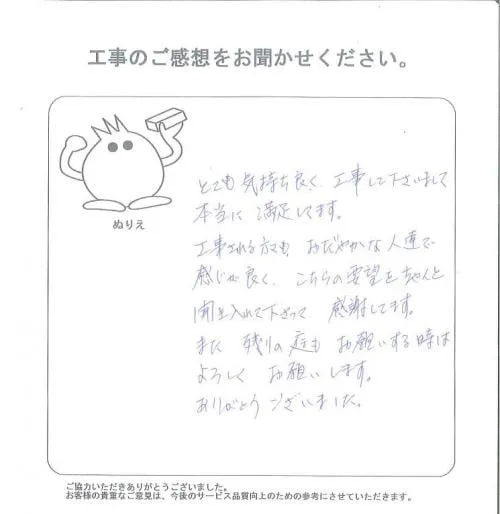 工事のご感想をお聞かせください。
ぬりえ
とても気持ち良く、工事して下さいまして
本当に満足してます。
工事される方々も、おだやかな人達で
感じが良く、こちらの要望をちゃんと
聞き入れて下さって、感謝してます。
また 残りの庭もお願いする時は
よろしく お願いします。
ありがとうございました。
ご協力いただきありがとうございました。
お客様の貴重なご意見は、今後のサービス品質向上のための参考にさせていただきます。